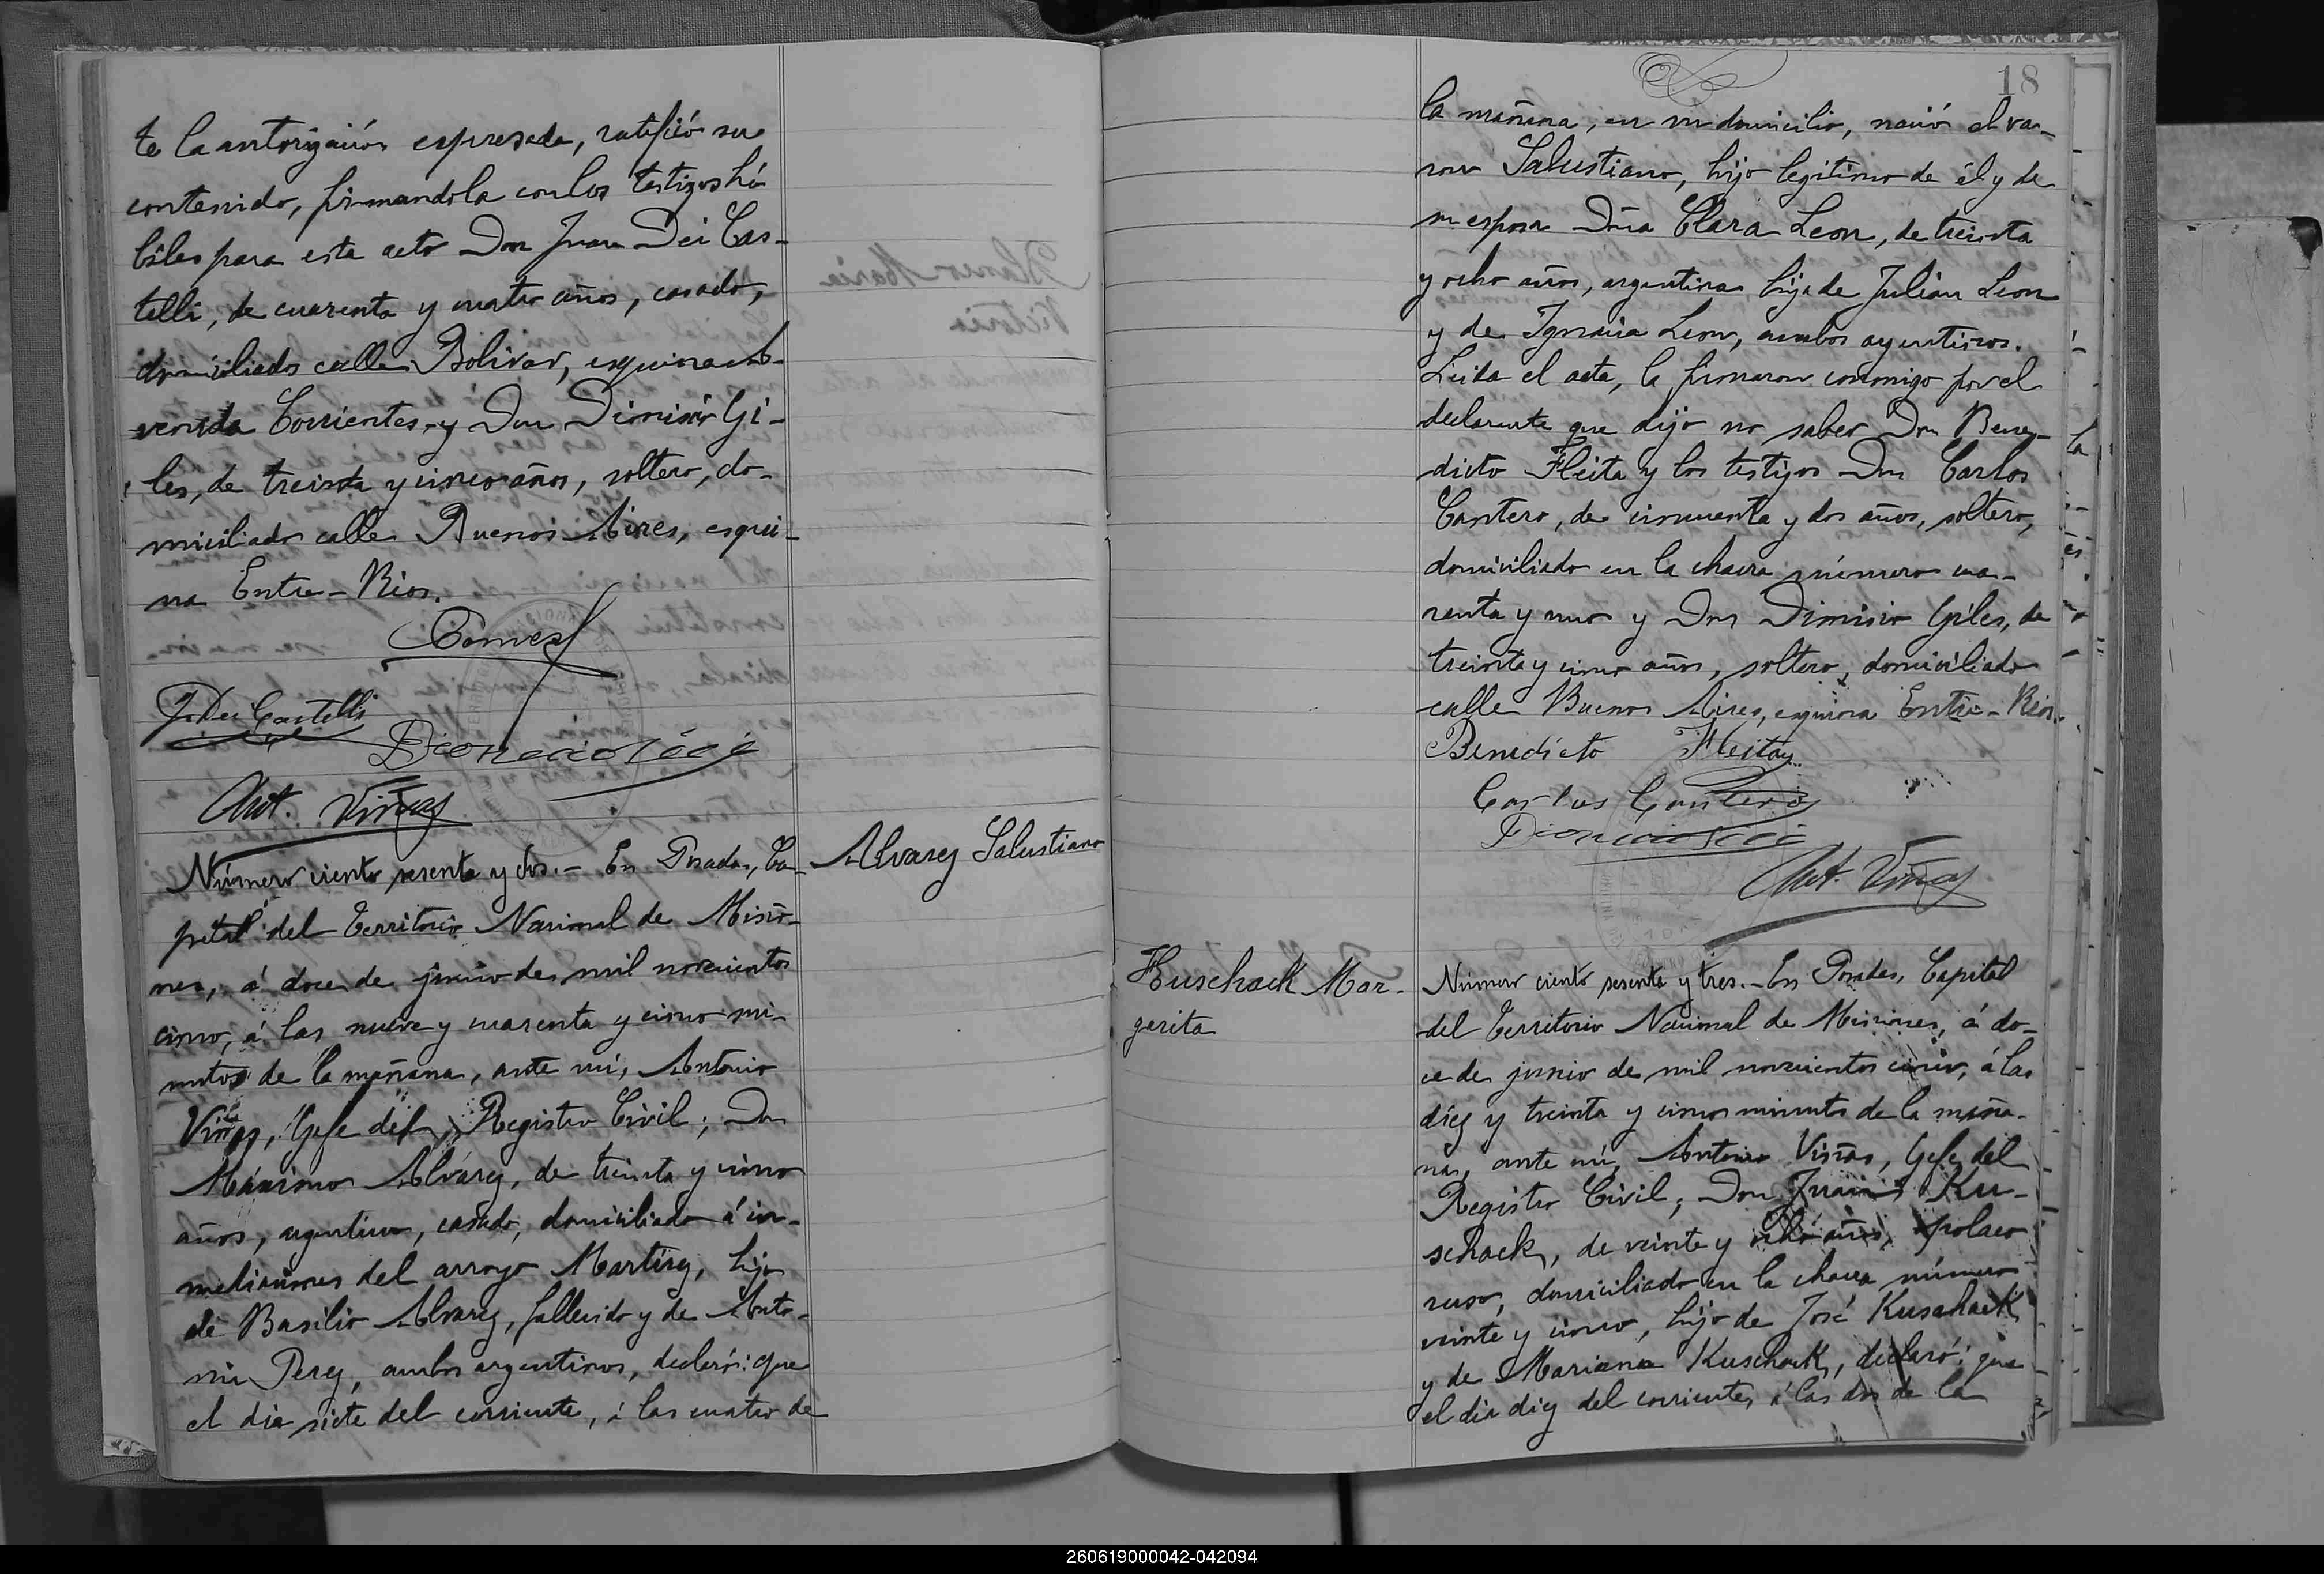 te la autorización espresada, ratificó su
contenido, firmandola con los testigos há
biles para este acto Don Juan Dei Cas-
telli, de cuarenta y cuatro años, casado,
domiciliado calle Bolivar, esquina a-
venida Corrientes y Don Dionisio Gi-
les, de treinta y cinco años, soltero, do-
miciliado calle Buenos Aires, esqui-
na Entre-Rios.
J. Dei Castelli
Ant. Viñas
Número ciento sesenta y dos.- En Posadas, Ca-
pital del Territorio Nacional de Misio-
nes, á doce de junio de mil novecientos
cinco, á las nueve y cuarenta y cinco mi-
nutos de la mañana, ante mí, Antonio
Viñas, Gefe del Registro Civil; Don
Máximo Alvarez, de treinta y cinco
años, argentino, casado, domiciliado á in-
mediaciones del arroyo Martirez, hijo
de Basilio Alvarez, fallecido y de Anto-
nia Perez, ambos argentinos, declaró: que
el dia siete del corriente, á las cuatro de
Alvarez Salustiano
18
la mañana, en su domicilio, nació el va-
ron Salustiano, hijo legitimo de él y de
su esposa Dña Clara Leon, de treinta
y ocho años, argentina hija de Julian Leon
y de Ignacia Leon, ambos argentinos.
Leida el acta, la firmaron conmigo por el
declarante que dijo no saber Don Bene-
dicto Fleita y los testigos Don Carlos
Cantero, de cincuenta y dos años, soltero,
domiciliado en la chacra número cua-
renta y uno y Don Dionisio Giles, de
treinta y cinco años, soltero, domiciliado
calle Buenos Aires, esquina Entre-Rios.
Benedicto Fleitas
Carlos Cantero
Ant. Viñas
Kuschack Mar-
garita
Número ciento sesenta y tres.- En Posadas, Capital
del Territorio Nacional de Misiones, á do-
ce de junio de mil novecientos cinco, á las
diez y treinta y cinco minutos de la maña-
na, ante mí, Antonio Viñas, Gefe del
Registro Civil; Don Juan Ku-
schack, de veinte y ocho años, polaco
ruso, domiciliado en la chacra número
veinte y cinco, hijo de José Kuschack
y de Mariana Kuschack, declaró: que
el dia diez del corriente, á las dos de la
260619000042-042094